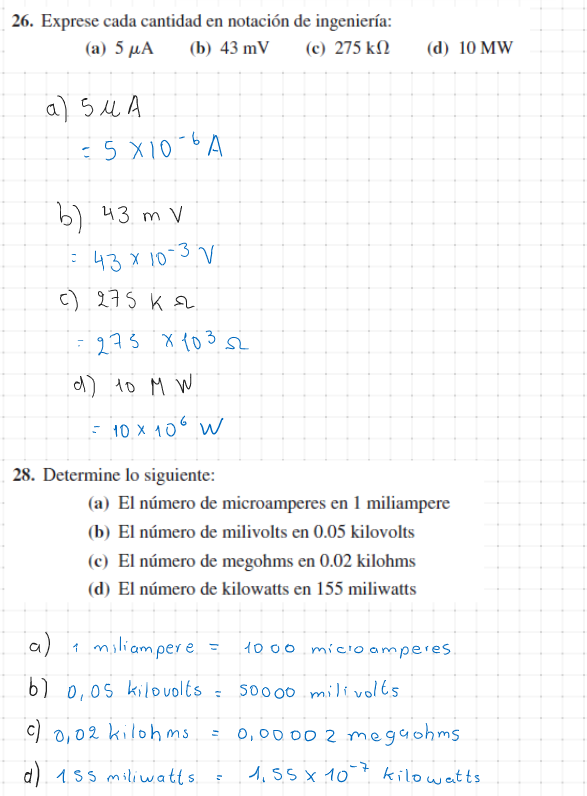 26. Exprese cada cantidad en notación de ingeniería:
(a) 5 μA (b) 43 mV (c) 275 kΩ (d) 10 MW
a) 5 μ A
= 5 ×10⁻⁶ A
b) 43 m V
= 43 × 10⁻³ V
c) 275 K Ω
= 275 ×10³ Ω
d) 10 M W
= 10 × 10⁶ W
28. Determine lo siguiente:
(a) El número de microamperes en 1 miliampere
(b) El número de milivolts en 0.05 kilovolts
(c) El número de megohms en 0.02 kilohms
(d) El número de kilowatts en 155 miliwatts
a) 1 miliampere = 1000 microamperes
b) 0,05 kilovolts = 50000 milivolts
c) 0,02 kilohms = 0,00002 megaohms
d) 155 miliwatts = 1,55 × 10⁻⁷ kilowatts